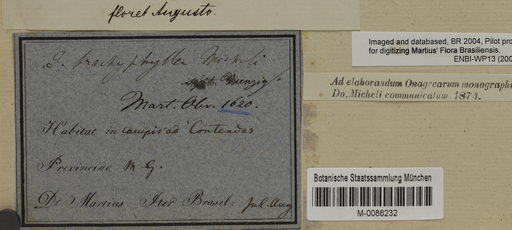 floret Augusto.
J. trachyphylla Micheli
Mart. Obs. 1620.
Habitat in campis ad Contendas
Provinciae M. G.
Dr Martius Iter Brasil. Jul. Aug
Imaged and databased, BR 2004, Pilot pro
for digitizing Martius' Flora Brasiliensis.
ENBI-WP13 (200
Ad elaborandum Onagrearum monographi
Do. Micheli communicatum. 1874.
Botanische Staatssammlung München
M-0086232